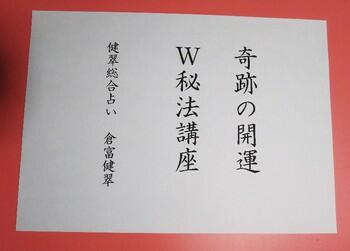 奇跡の開運
W秘法講座
健翠総合占い　倉富健翠